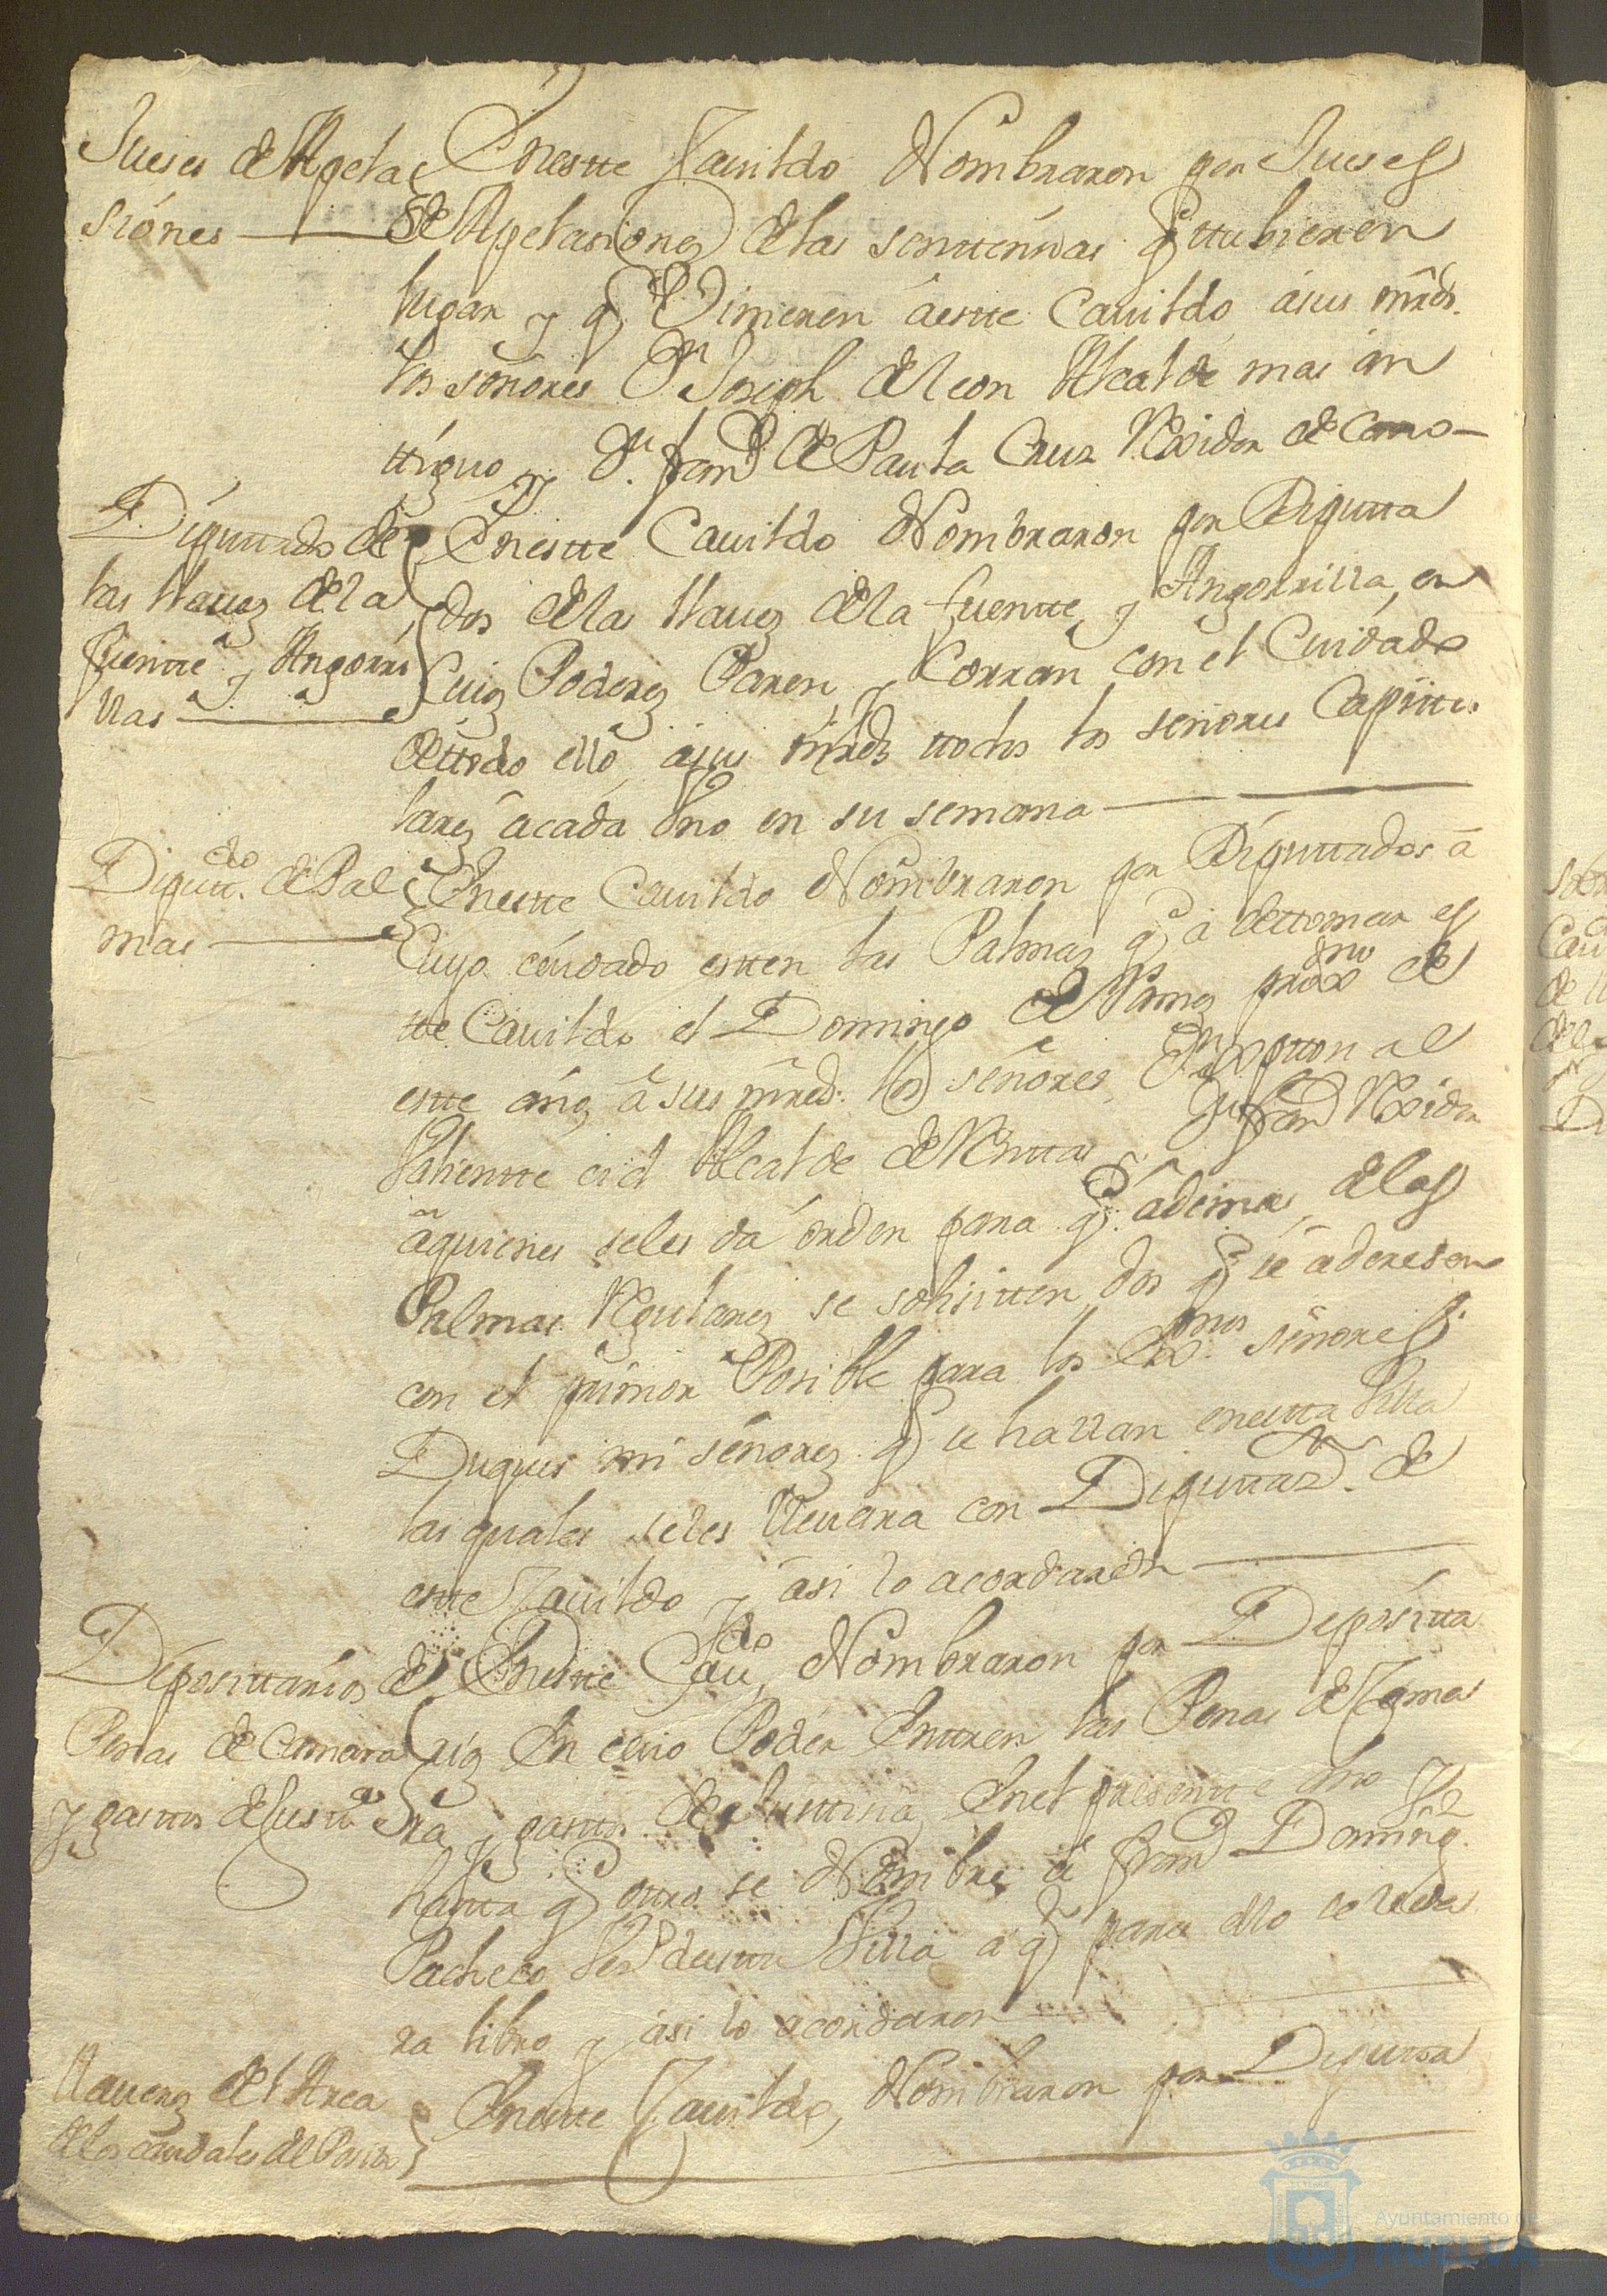 Jueses de Apela
siones
Enestte Cavildo Nombraron por Jueses
de Apelasiones de las senttensias q ttubieren
lugar y q Vinieren áestte Cavildo ásus mrds.
los señores Dn Joseph de leon Alcalde mas an
ttiguo y Dn. Franco de Paula Cruz Rexidor de Cano
Diputtados de
las llaves de la
fuentte y Angorri
llas
Enestte Cavildo Nombraron por Diputta
dos de las llaves de la fuentte y Angorrilla, en
Cuios Poderes Paren y Corran con el Cuidado
de ttodo ello, asus mrds ttodos los señores Capittu
lares ácada Uno en su semana
Diputtdo. de Pal
mas
Enestte Cavildo Nombraron por Diputtados á
Cuyo cuidado estten las Palmas q á de ttomar es
tte Cavildo el Domingo de Ramos proxmo de
estte año á sus mrds. los señores Dn
Valientte Alcalde de Renttas y Dn Franco Rexidor
áquienes seles dá orden para q. ádemas de las
Palmas Regulares se solisitten dos q se aderesen
con el primor Posible para los Exmos. señores
Duques mi señores q se hallan enestta Villa
las quales seles llevara con Diputtazn. de
estte Cavildo y ási lo acordaron
Deposittarios de
Penas de Camara
y gasttos de Justta
Enestte Cavdo, Nombraron por Deposítta
rios En cuio Poder Enttren las Penas de Cama
ra y gasttos de Justtisia Enel presentte Año y
hastta q ottro se Nombre á Franco Doming.
Pacheco Veso destta Villa á q para ello se le da
ra libro y ási lo acordaron
Llaveros del Arca
de los caudales del Posito
Enestte Cavildo, Nombraron por Diputta
Ayuntamiento de
HUELVA